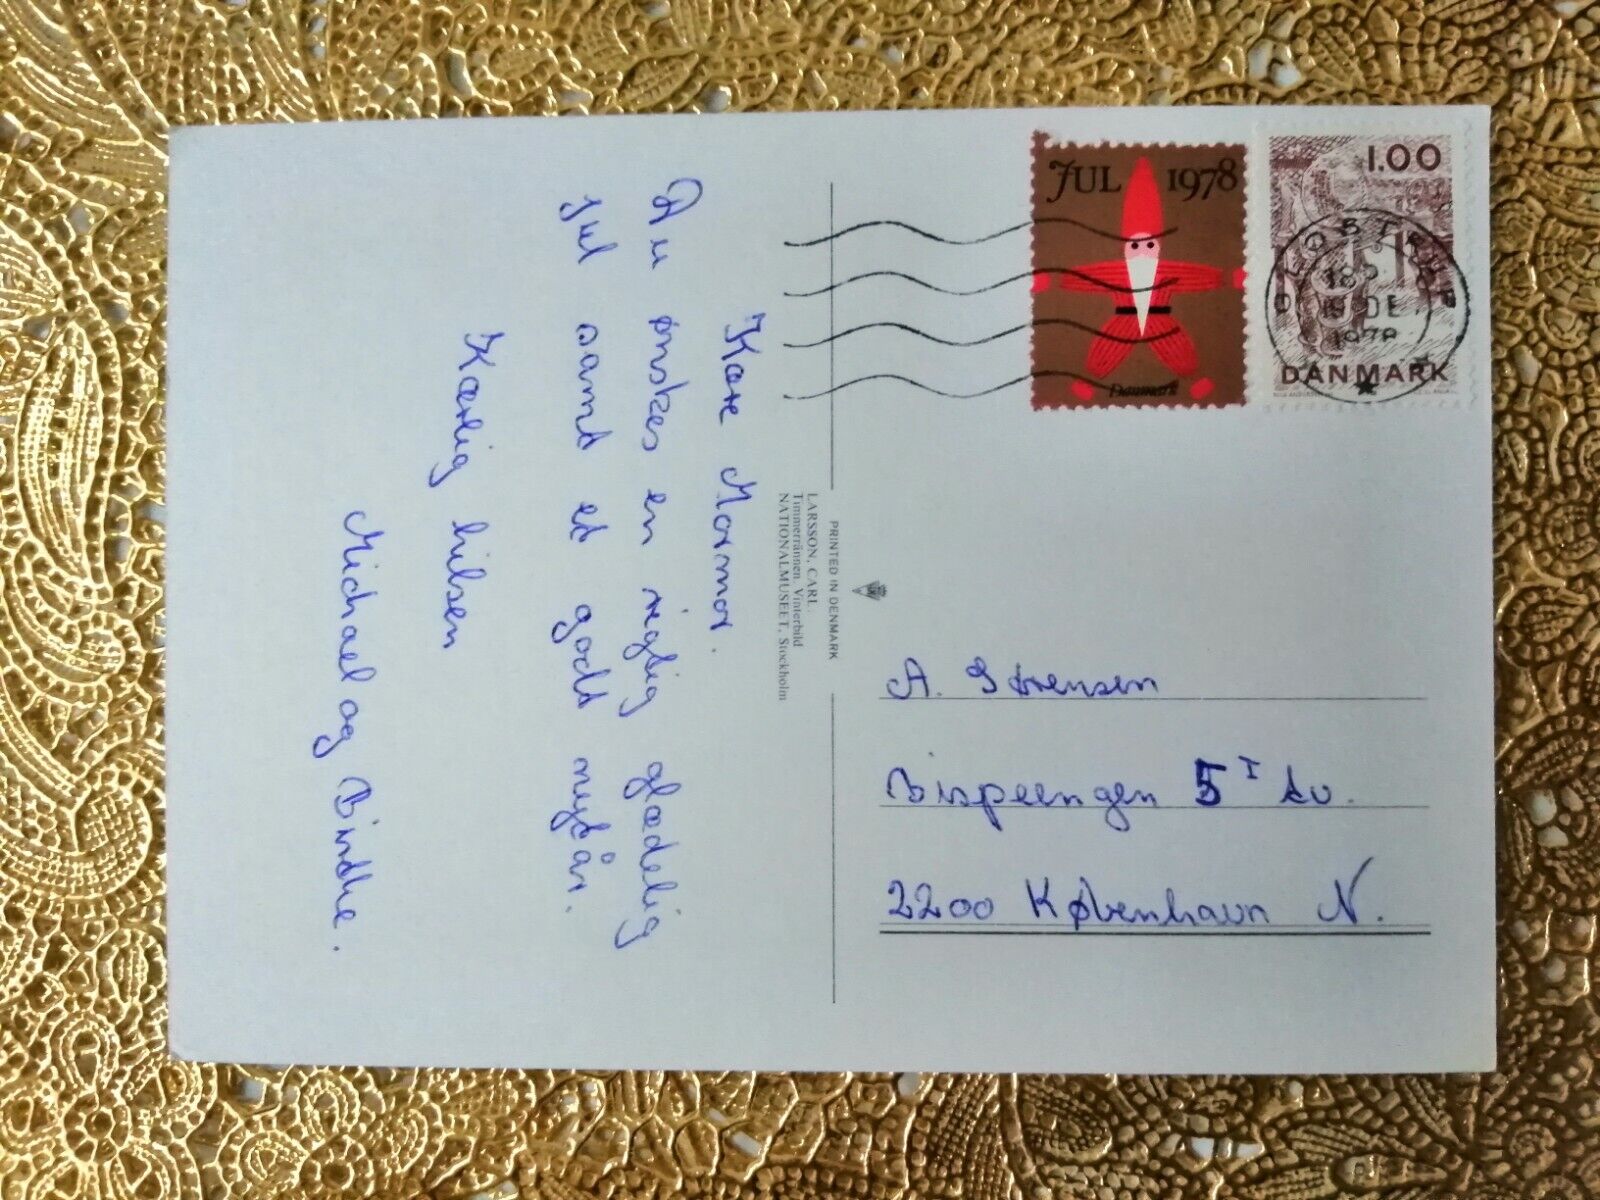 Kære Mormor.
Du ønskes en rigtig glædelig
jul samt et godt nytår.
Kærlig hilsen
Michael og Birthe.
PRINTED IN DENMARK
LARSSON, CARL.
Timmerrännen. Vinterbild
NATIONALMUSEET, Stockholm
JUL 1978
Danmark
1.00
DANMARK
GLOSTRUP
19 DE
1978
A. Sørensen
Bispeengen 5 I tv.
2200 København N.